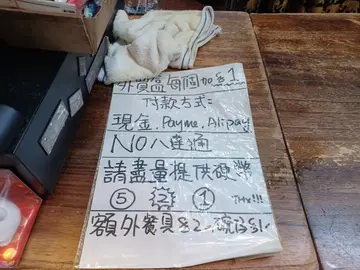 外賣盒每個加$1
付款方式=
現金、Payme、Alipay
NO八達通
請盡量提供硬幣
⑤ ② ① Thx!!!
額外餐具$2、碗仔$1-